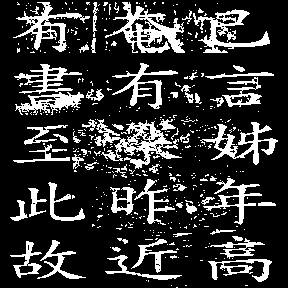 言姊年高
奄有昨近
有書至此故